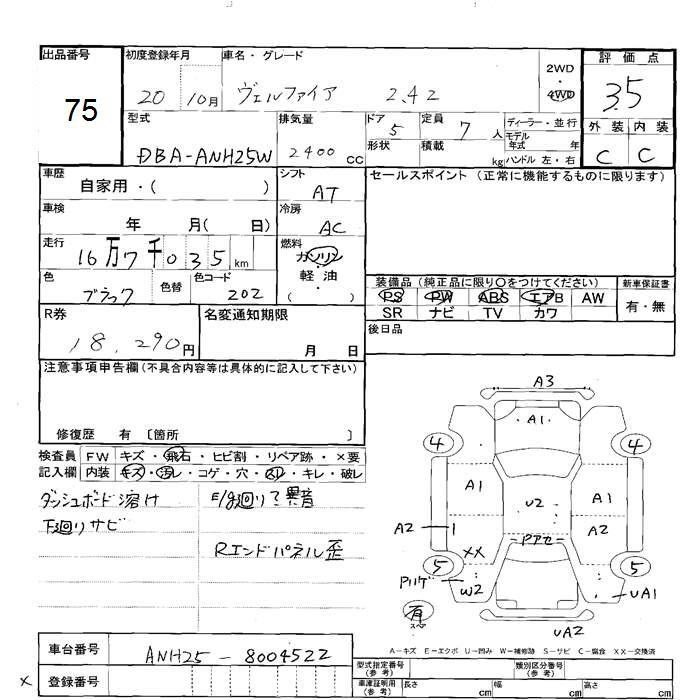 出品番号
75
初度登録年月
20 10月
車名・グレード
ヴェルファイア 2.4Z
2WD
・
4WD
評価点
3.5
型式
DBA-ANH25W
排気量
2400 cc
ドア
5
形状
定員
7 人
積載
kg
ディーラー・並行
モデル
年式 年
ハンドル 左・右
外装
C
内装
C
車歴
自家用・( )
シフト
AT
セールスポイント (正常に機能するものに限ります)
車検
年 月( 日)
冷房
AC
走行
16万7千035 km
燃料
ガソリン
軽・油
( )
色
ブラック
色替
色コード
202
装備品 (純正品に限り○をつけてください)
PS PW ABS エアB AW
SR ナビ TV カワ
新車保証書
有・無
R券
18,290円
名変通知期限
月 日
後日品
注意事項申告欄 (不具合内容等は具体的に記入して下さい)
修復歴 有 〔箇所 〕
検査員
記入欄
FW キズ・飛石・ヒビ割・リペア跡・×要
内装 キズ・汚レ・コゲ・穴・スレ・キレ・破レ
ダッシュボード溶け
下廻りサビ
E/g廻り異音
Rエンドパネル歪
A3
A1
4
4
A1
A1
U2
A2
A2
XX
5
5
W2
UA1
有
UA2
A−キズ E−エクボ U−凹み W−補修跡 S−サビ C−腐食 XX−交換済
車台番号
ANH25-8004522
登録番号
×
型式指定番号
(参考)
類別区分番号
(参考)
車庫証明用
(参考)
長さ cm
幅 cm
高さ cm